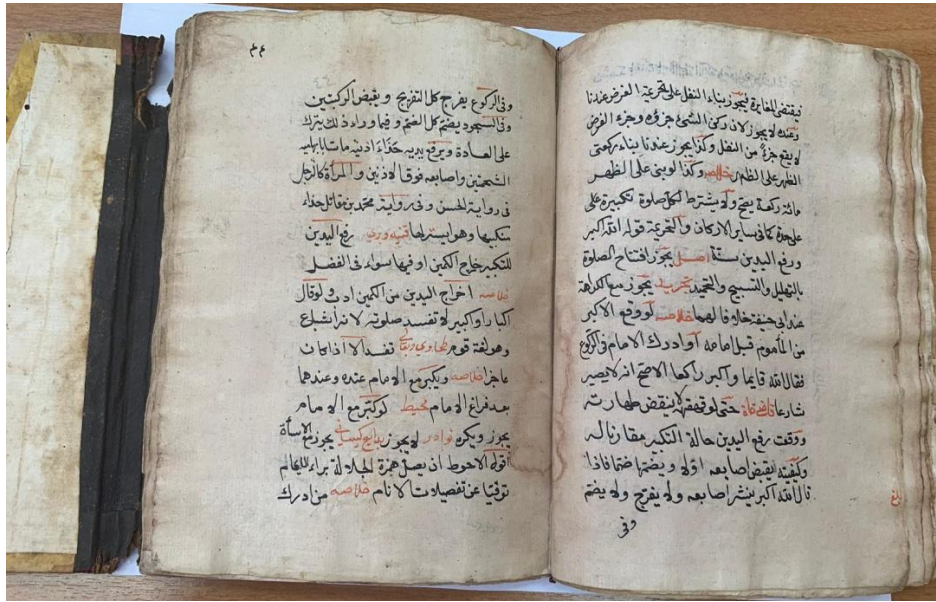 فيقتضي المغايرة يجوز بناء النفل على تحريمة الفرض عندنا
وعنده لا يجوز لان ركن الشيء جزؤه وجزء الفرض
لا يقع جزأ من النفل وكذا يجوز عندنا بناء ركعتي
الظهر على الظهر خلاصه وكذا لو بنى على الظهر
مائة ركعة يصح ولا يشترط لكل صلوة تكبيرة على
حدة كما في ساير الاركان والتحريمة قوله الله اكبر
ورفع اليدين سنة اصل يجوز افتتاح الصلوة
بالتهليل والتسبيح والتحميد تجريد يجوز مع الكراهة
عند ابي حنيفة خلافا لهما خلاصه لو وقع الاكبر
من المأموم قبل امامه او ادرك الامام في الركوع
فقال الله قايما واكبر راكعا الاصح انه لا يصير
شارعا قاضيخان حتى لو قهقه لا ينقض طهارته
ووقت رفع اليدين حالة التكبير مقارنا له
وكيفيته يقبض اصابعه اولا ويضمها ضما فاذا
قال الله اكبر ينشر اصابعه ولا يفرج ولا يضم
وفي
٤٤
وفي الركوع يفرج كل التفريج ويقبض الركبتين
وفي السجود يضم كل الضم وفيما وراء ذلك يترك
على العادة ويرفع يديه حذاء اذنيه ماسا بابهاميه
الشحمتين واصابعه فوق الاذنين والمرأة كالرجل
في رواية الحسن وفي رواية محمد بن مقاتل حذاء
منكبيها وهو استر لها رفع اليدين
للتكبير خارج الكمين او فيهما سواء في الفضل
خلاصه اخراج اليدين من الكمين ادب لو قال
اكبار او اكبير لا تفسد صلوته لانه اشباع
وهو لغة قوم تفسد الا اذا كان
عاجزا خلاصه ويكبر مع الامام عنده وعندهما
بعد فراغ الامام محيط لو كبر مع الامام
يجوز ويكره نوادر لا يجوز يجوز مع الاسأة
قوله الاحوط ان يصل همزة الجلالة براء
توقيا عن خلاصه من ادرك